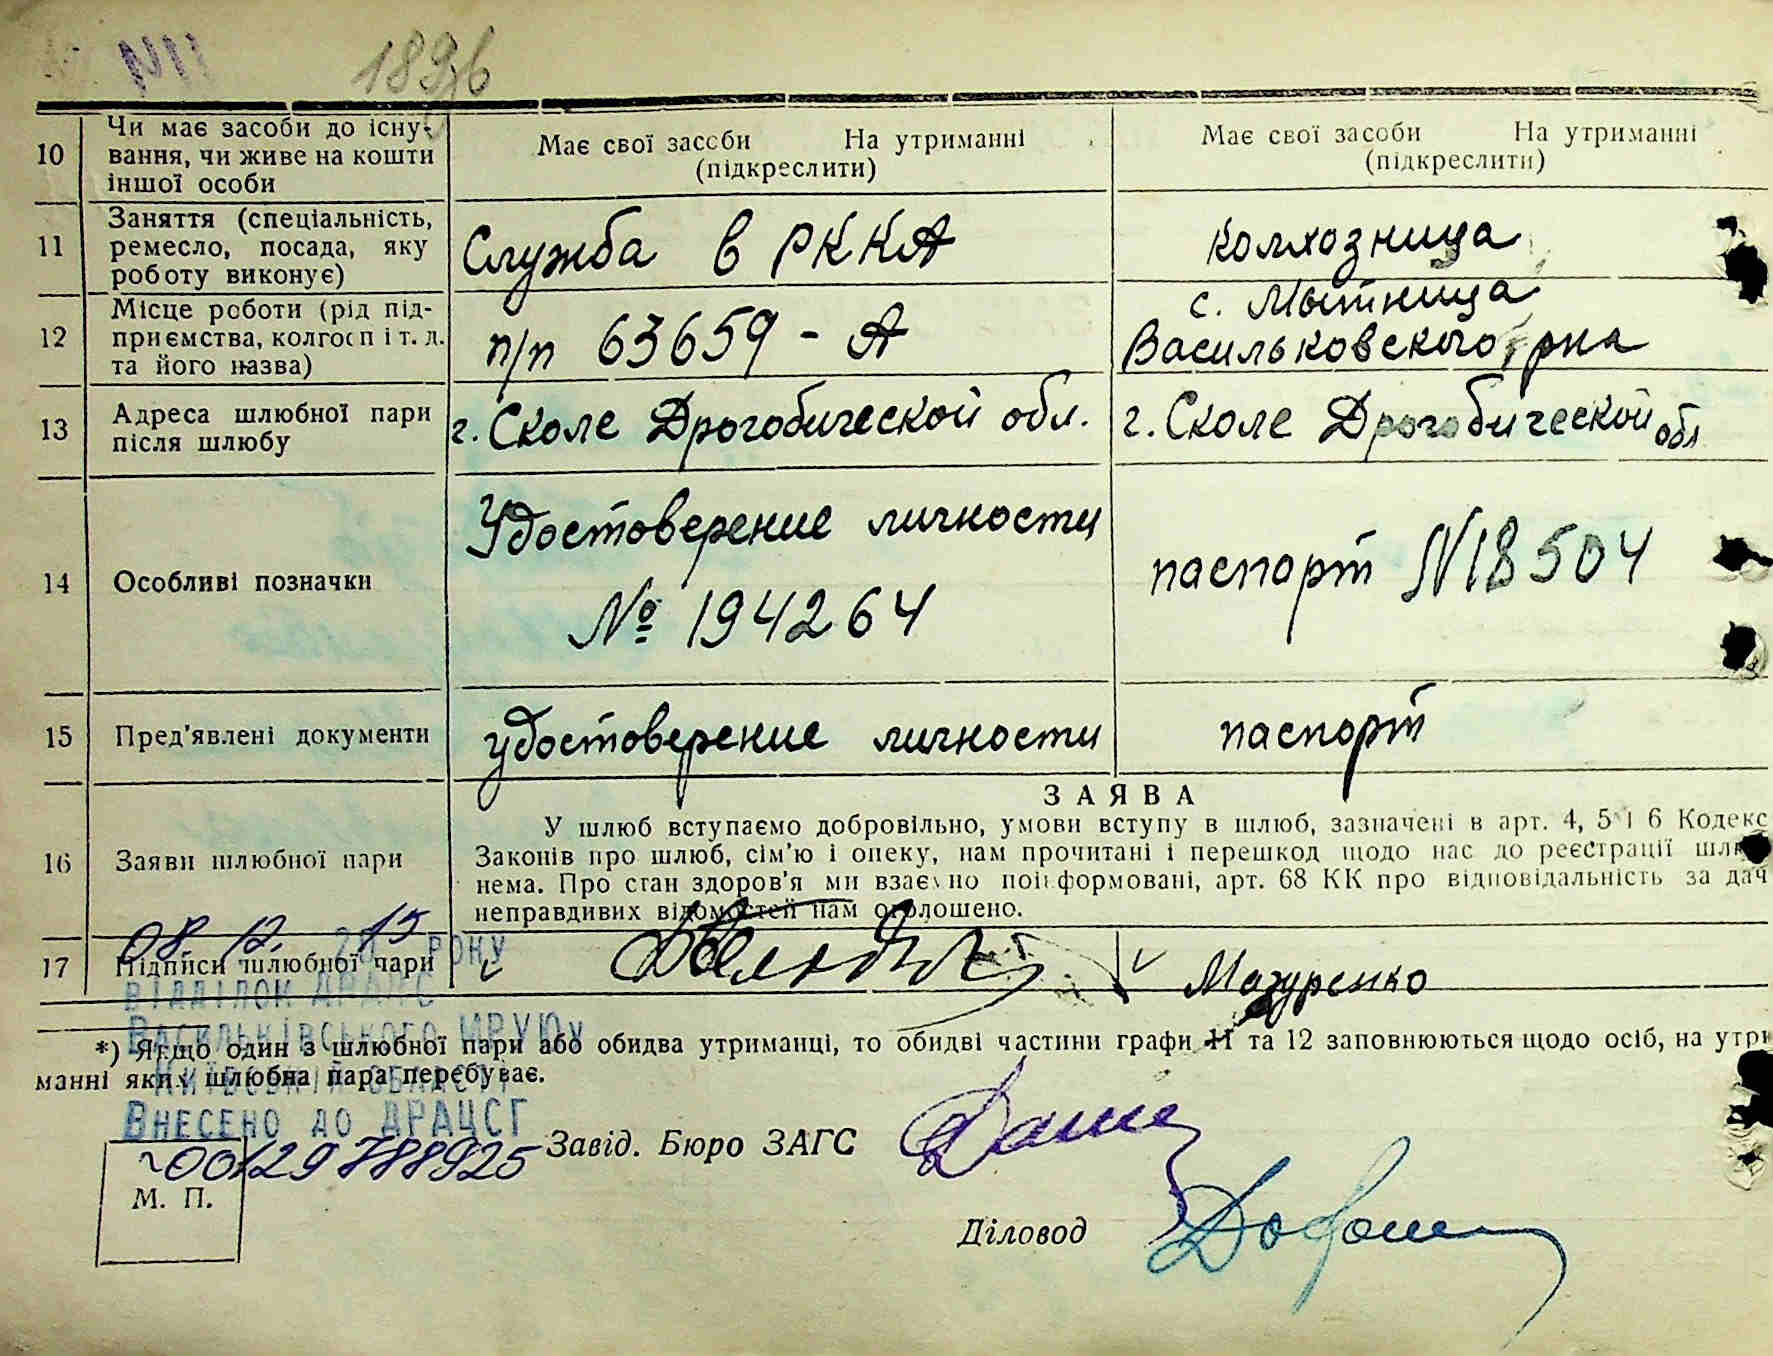 1896
10 Чи має засоби до існу-
вання, чи живе на кошти
іншої особи
Має свої засоби На утриманні
(підкреслити)
Має свої засоби На утриманні
(підкреслити)
11 Заняття (спеціальність,
ремесло, посада, яку
роботу виконує)
Служба в РККА
колхозница
12 Місце роботи (рід під-
приємства, колгосп і т. д.
та його назва)
п/п 63659 - А
с. Мытница
Васильковского, рна
13 Адреса шлюбної пари
після шлюбу
г. Сколе Дрогобической обл.
г. Сколе Дрогобической обл
14 Особливі позначки
Удостоверение личности
№ 194264
паспорт N18504
15 Пред'явлені документи
удостоверение личности
паспорт
16 Заяви шлюбної пари
ЗАЯВА
У шлюб вступаємо добровільно, умови вступу в шлюб, зазначені в арт. 4, 5 і 6 Кодекс
Законів про шлюб, сім'ю і опеку, нам прочитані і перешкод щодо нас до реєстрації шлю
нема. Про стан здоров'я ми взаємно поінформовані, арт. 68 КК про відповідальність за дач
неправдивих відомостей нам оголошено.
08 12. 15
20 РОКУ
17 Підписи шлюбної пари
Мазуренко
ВІДДІЛОМ ДРАЦС
ВАСИЛЬКІВСЬКОГО МРУЮ
*) Якщо один з шлюбної пари або обидва утриманці, то обидві частини графи 11 та 12 заповнюються щодо осіб, на утри
манні яких шлюбна пара перебуває.
КИЇВСЬКІЙ ОБЛАСТІ
ВНЕСЕНО ДО ДРАЦСГ
00129788925
Завід. Бюро ЗАГС
М. П.
Діловод